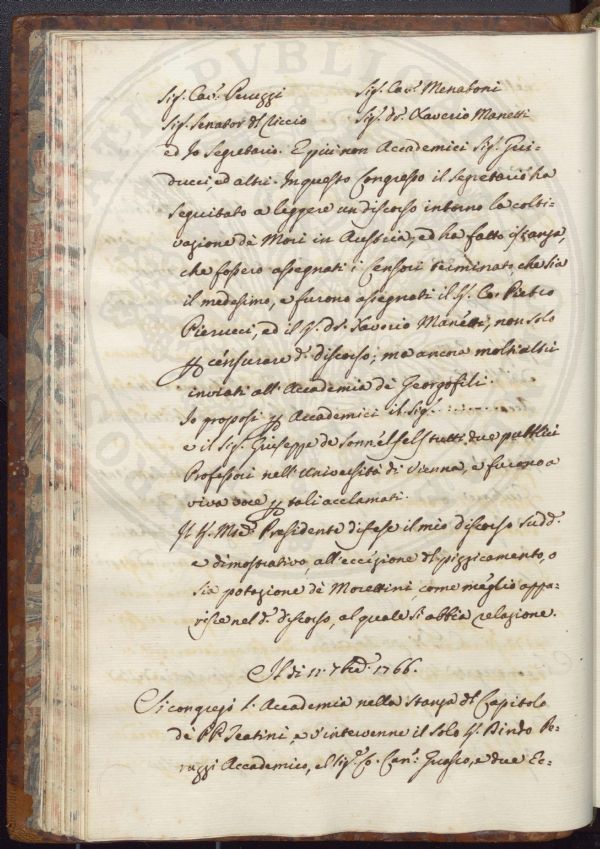 Sig.r Cav.e Peruzzi Sig.r Cav.e Menaboni
Sig.r Senator del Riccio Sig.r D.r Xaverio Manetti
ed Io Segretario. E più non Accademici Sig.r Gui-
ducci ed altri. In questo Congresso il Segretario ha
seguitato a leggere un discorso intorno la colti-
vazione de Mori in Austria, ed ha fatto istanza,
che fossero assegnati i Censori terminato, che sia
il medesimo, e furono assegnati il S.r Co. Pietro
Pierucci, ed il S.r D.r Xaverio Manetti, non solo
p censurare d.o discorso; ma ancora molti altri
inviati all'Accademia de Georgofili.
Io proposi p Accademici il Sig.r ..........
e il Sig.r Giuseppe de Sonnelfels tutti due pubblici
Professori nell'Università di Vienna, e furono a
viva voce p tali acclamati.
Il S.r Presidente difese il mio discorso sudd.o
e dimostrativo, all'eccezione del pizzicamento, o
sia potazione de Morettini, come meglio appa-
risce nel d.o discorso, al quale si abbia relazione.
Il di 11 7bre 1766.
Si congregò l'Accademia nella Stanza del Capitolo
de PP. Teatini, e v'intervenne il solo S.r Bindo Pe-
ruzzi Accademico, el Sig.r Co. Can.o Guasco, e due Ec-